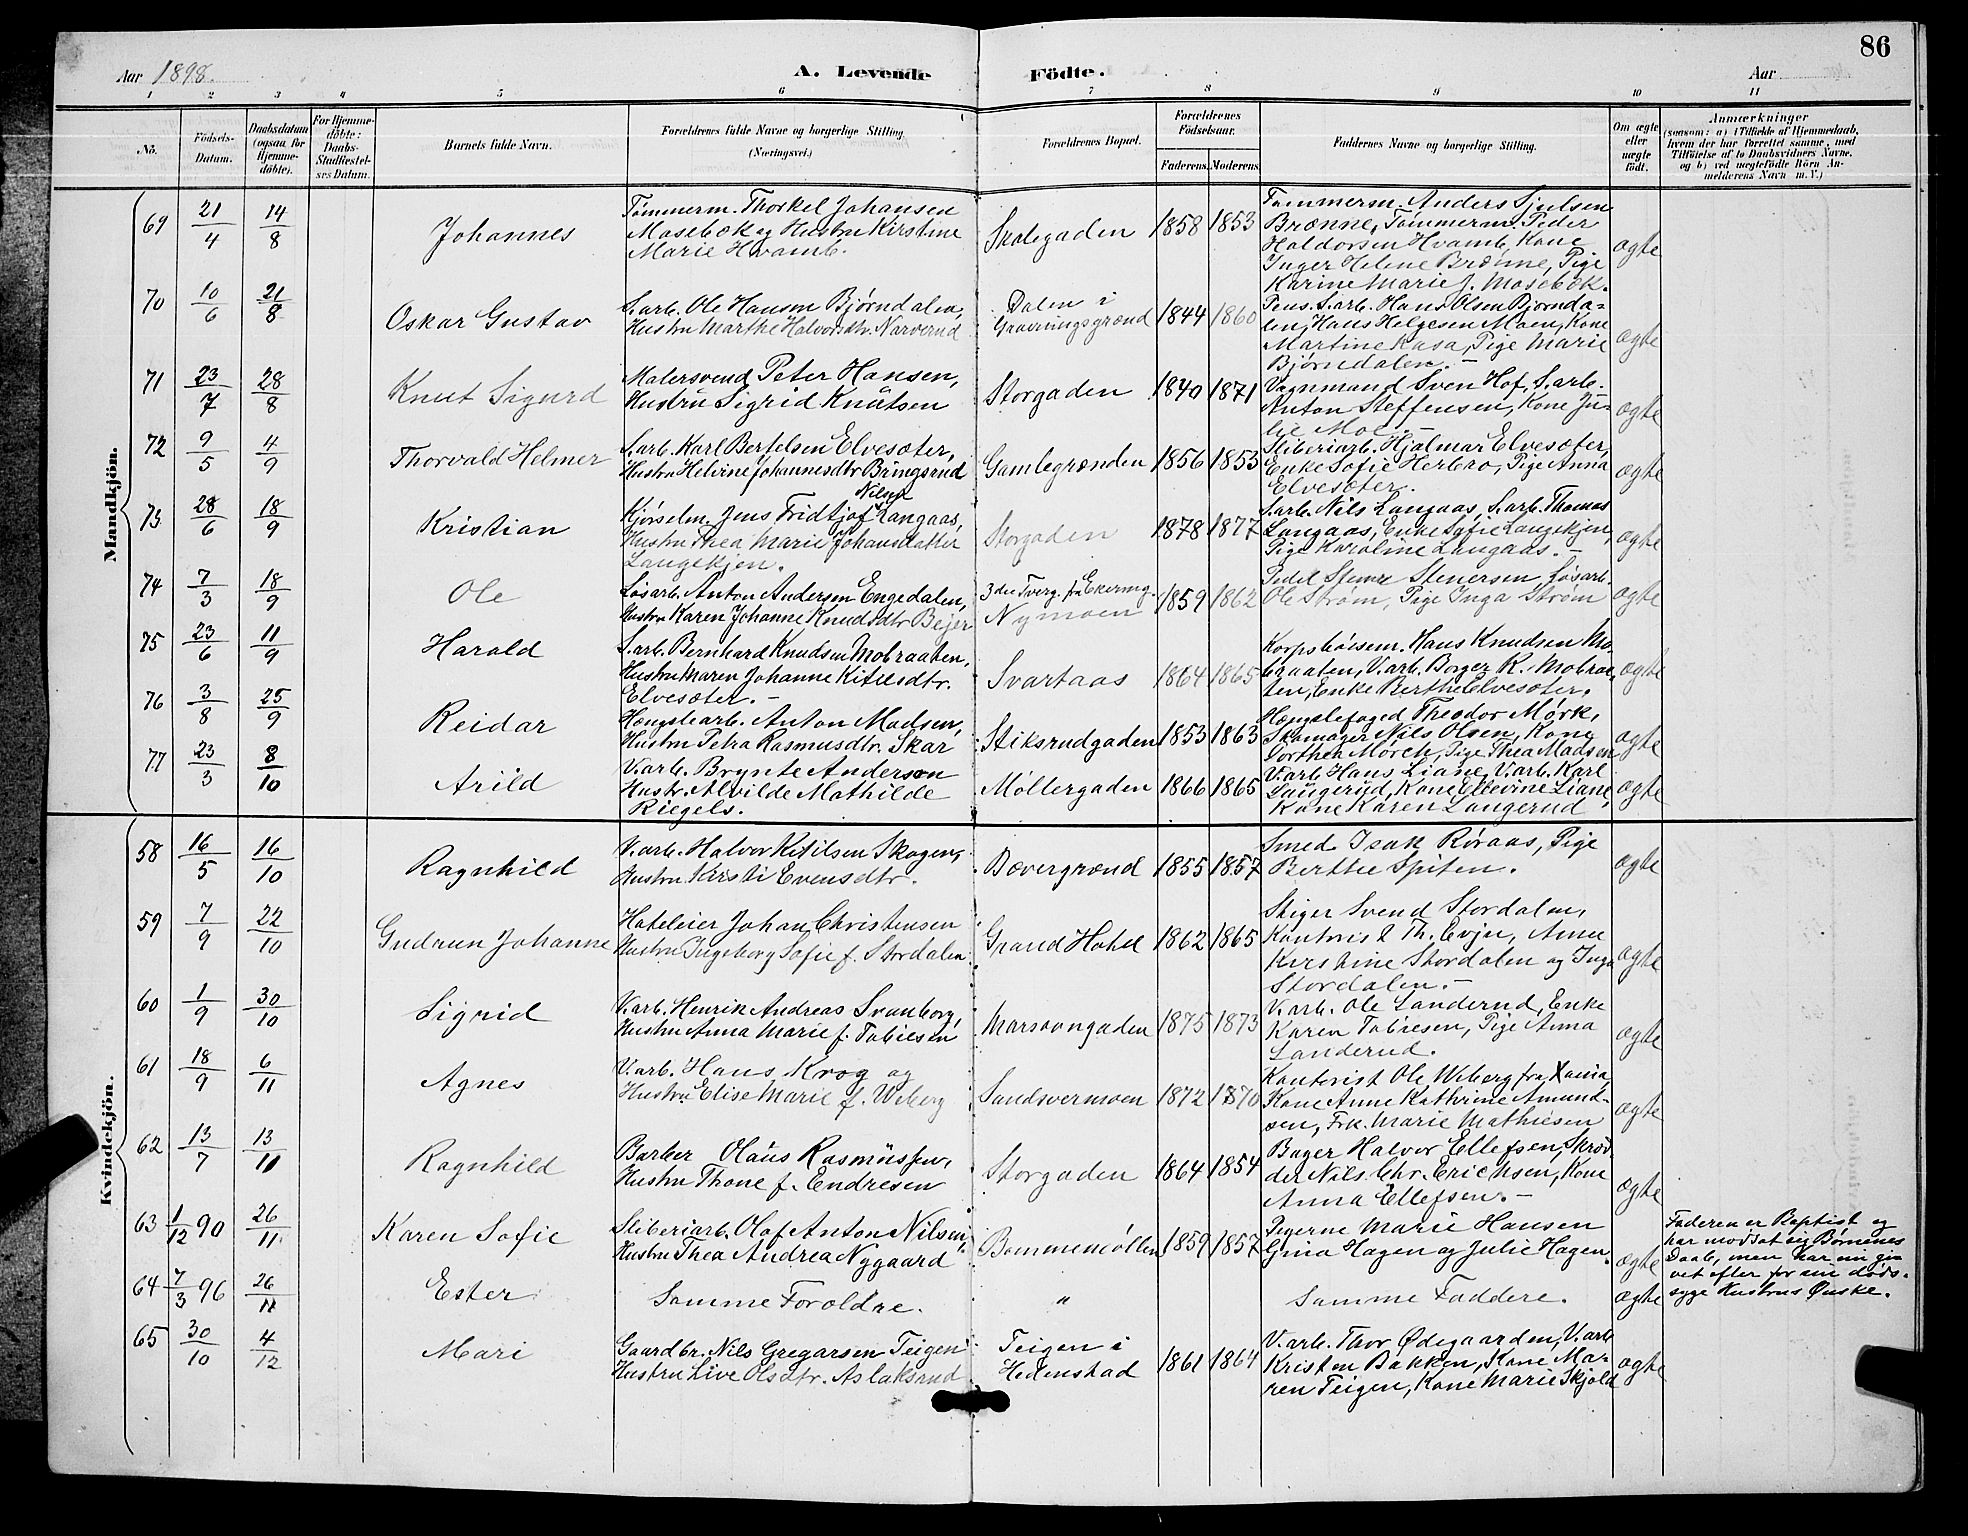 86
Aar 1898. A. Levende Födte. Aar
1 2 3 4 5 6 7 8 9 10 11
No.
Födsels-
Datum.
Daabsdatum
(ogsaa for
Hjemme-
döbte).
For Hjemme-
döbte:
Daabs-
Stadfæstel-
ses Datum.
Barnets fulde Navn.
Forældrenes fulde Navne og borgerlige Stilling.
(Næringsvei.)
Forældrenes Bopæl.
Forældrenes
Födselsaar.
Faderens. Moderens.
Faddernes Navne og borgerlige Stilling.
Om ægte
eller
uægte
födt.
Anmærkninger
(saasom: a) i Tilfælde af Hjemmedaab,
hvem der har forrettet samme, med
Tilföielse af to Daabsvidners Navne,
og b) ved uægtefödte Börn An-
melderens Navn m. V.)
Mandkjön.
69 21/4 14/8 Johannes
Tømmerm. Thorkel Johansen
Mosebæk og Hustru Kirstine
Marie Hvamb.
Skolegaden 1858 1853
Tømmerm. Anders Sjulsen
Brænne, Tømmerm. Peder
Haldorsen Hvamb, Kone
Inger Helene Brænne, Pige
Karine Marie J. Mosebæk.
ægte
70 10/6 21/8 Oskar Gustav
S.arb. Ole Hansen Bjørndalen,
Hustru Marthe Halvorsdtr. Narverud
Dalen i
Gravningsgrænd 1844 1860
Pens. S.arb. Hans Olsen Bjørnda-
len, Hans Helgesen Moen, Kone
Martine Kasa, Pige Marie
Bjørndalen.-
ægte
71 23/7 28/8 Knut Sigurd
Malersvend Peter Hansen,
Hustru Sigrid Knutsen
Storgaden 1840 1871
Vognmand Sven Hof, S.arb.
Anton Steffensen, Kone Ju-
lie Moe.-
ægte
72 9/5 4/9 Thorvald Helmer
S.arb. Karl Bertelsen Elvesæter,
Hustru Helvine Johannesdtr Bringsrud
Gamlegrænden 1856 1853
Sliberiarb. Hjalmar Elvesæter,
Enke Sofie Herbro, Pige Anna
Elvesæter.
ægte
73 28/6 18/9 Kristian
Nilsen
Kjørselm. Jens Fridtjof Langaas,
Hustru Thea Marie Johansdatter
Langekjen.
Storgaden 1878 1877
S.arb. Nils Langaas, S.arb. Thomas
Langaas, Enke Sofie Langekjen,
Pige Karoline Langaas.-
ægte
74 7/3 18/9 Ole
Løsarb. Anton Andersen Engedalen,
Hustru Karen Johanne Knudsdtr Bejer
3die Tverg. fra Ekerning.
Nymoen 1859 1862
Pedel Stener Stenersen, Løsarb.
Ole Strøm, Pige Inga Strøm
ægte
75 23/6 11/9 Harald
S.arb. Bernhard Knudsen Mobraaten,
Hustru Maren Johanne Kitilsdtr.
Elvesæter.-
Svartaas 1864 1865
Korpsbøssem. Hans Knudsen Mo-
braaten, V.arb. Borger K. Mobraa-
ten, Enke Berthe Elvesæter.
ægte
76 3/8 25/9 Reidar
Hængslearb. Anton Madsen,
Hustru Petra Rasmusdtr. Skar
Stiksrudgaden 1853 1863
Hængslefoged Theodor Mørk,
Skomager Nils Olsen, Kone
Dorthea Mørch, Pige Thea Madsen
ægte
77 23/3 8/10 Arild
V.arb. Brynte Anderson
Hustr. Alvilde Mathilde
Riegels.
Møllergaden 1866 1865
V.arb. Hans Liane, V.arb. Karl
Saugerud, Kone Ellevine Liane,
Kone Karen Langerud
ægte
Kvindekjön.
58 16/5 16/10 Ragnhild
V.arb. Halvor Kitilsen Skogen,
Hustru Kirsti Evensdtr.
Bævergrænd 1855 1857
Smed Isak Røraas, Pige
Berthe Spiten.
ægte
59 7/9 22/10 Gudrun Johanne
Hoteleier Johan Christensen
Hustru Ingeborg Sofie f. Stordalen
Grand Hotel 1862 1865
Stiger Svend Stordalen,
Kontorist Th. Evju, Anne
Kirstine Stordalen og Inga
Stordalen.-
ægte
60 1/9 30/10 Sigrid
V.arb. Henrik Andreas Svanborg,
Hustru Anna Marie f. Tobiesen
Marsovngaden 1875 1873
V.arb. Ole Landerud, Enke
Karen Tobiesen, Pige Anna
Landerud.
ægte
61 18/9 6/11 Agnes
V.arb. Hans Krog og
Hustru Elise Marie f. Wiberg
Sandsvermoen 1872 1870
Kontorist Ole Wiberg fra Xania,
Kone Anne Kathrine Amund-
sen, Frk. Marie Mathiesen
ægte
62 13/7 13/11 Ragnhild
Barber Olaus Rasmussen,
Hustru Thone f. Endresen
Storgaden 1864 1854
Bager Halvor Ellefsen, Skræd-
der Nils Chr. Erichsen, Kone
Anna Ellefsen.-
ægte
63 1/12 90 26/11 Karen Sofie
Sliberiarb. Olaf Anton Nilsen,
Hustru Thea Andrea Nygaard
Bommemøllen 1859 1857
Pigerne Marie Hansen
Gina Hagen og Julie Hagen.
ægte
Faderen er Baptist og
har modsat sig Børnenes
Daab, men har nu gi-
vet efter for sin døds-
syge Hustrus Ønske.
64 7/3 96 26/11 Ester
Samme Foroldre. " Samme Faddere. ægte
65 30/10 4/12 Mari
Gaardbr. Nils Gregarsen Teigen
Hustru Live Olsdtr. Aslaksrud
Teigen i
Hedenstad 1861 1864
V.arb. Thor Ødegaarden, V.arb.
Kristen Bakken, Kone Ma-
ren Teigen, Kone Marie Skjold
ægte